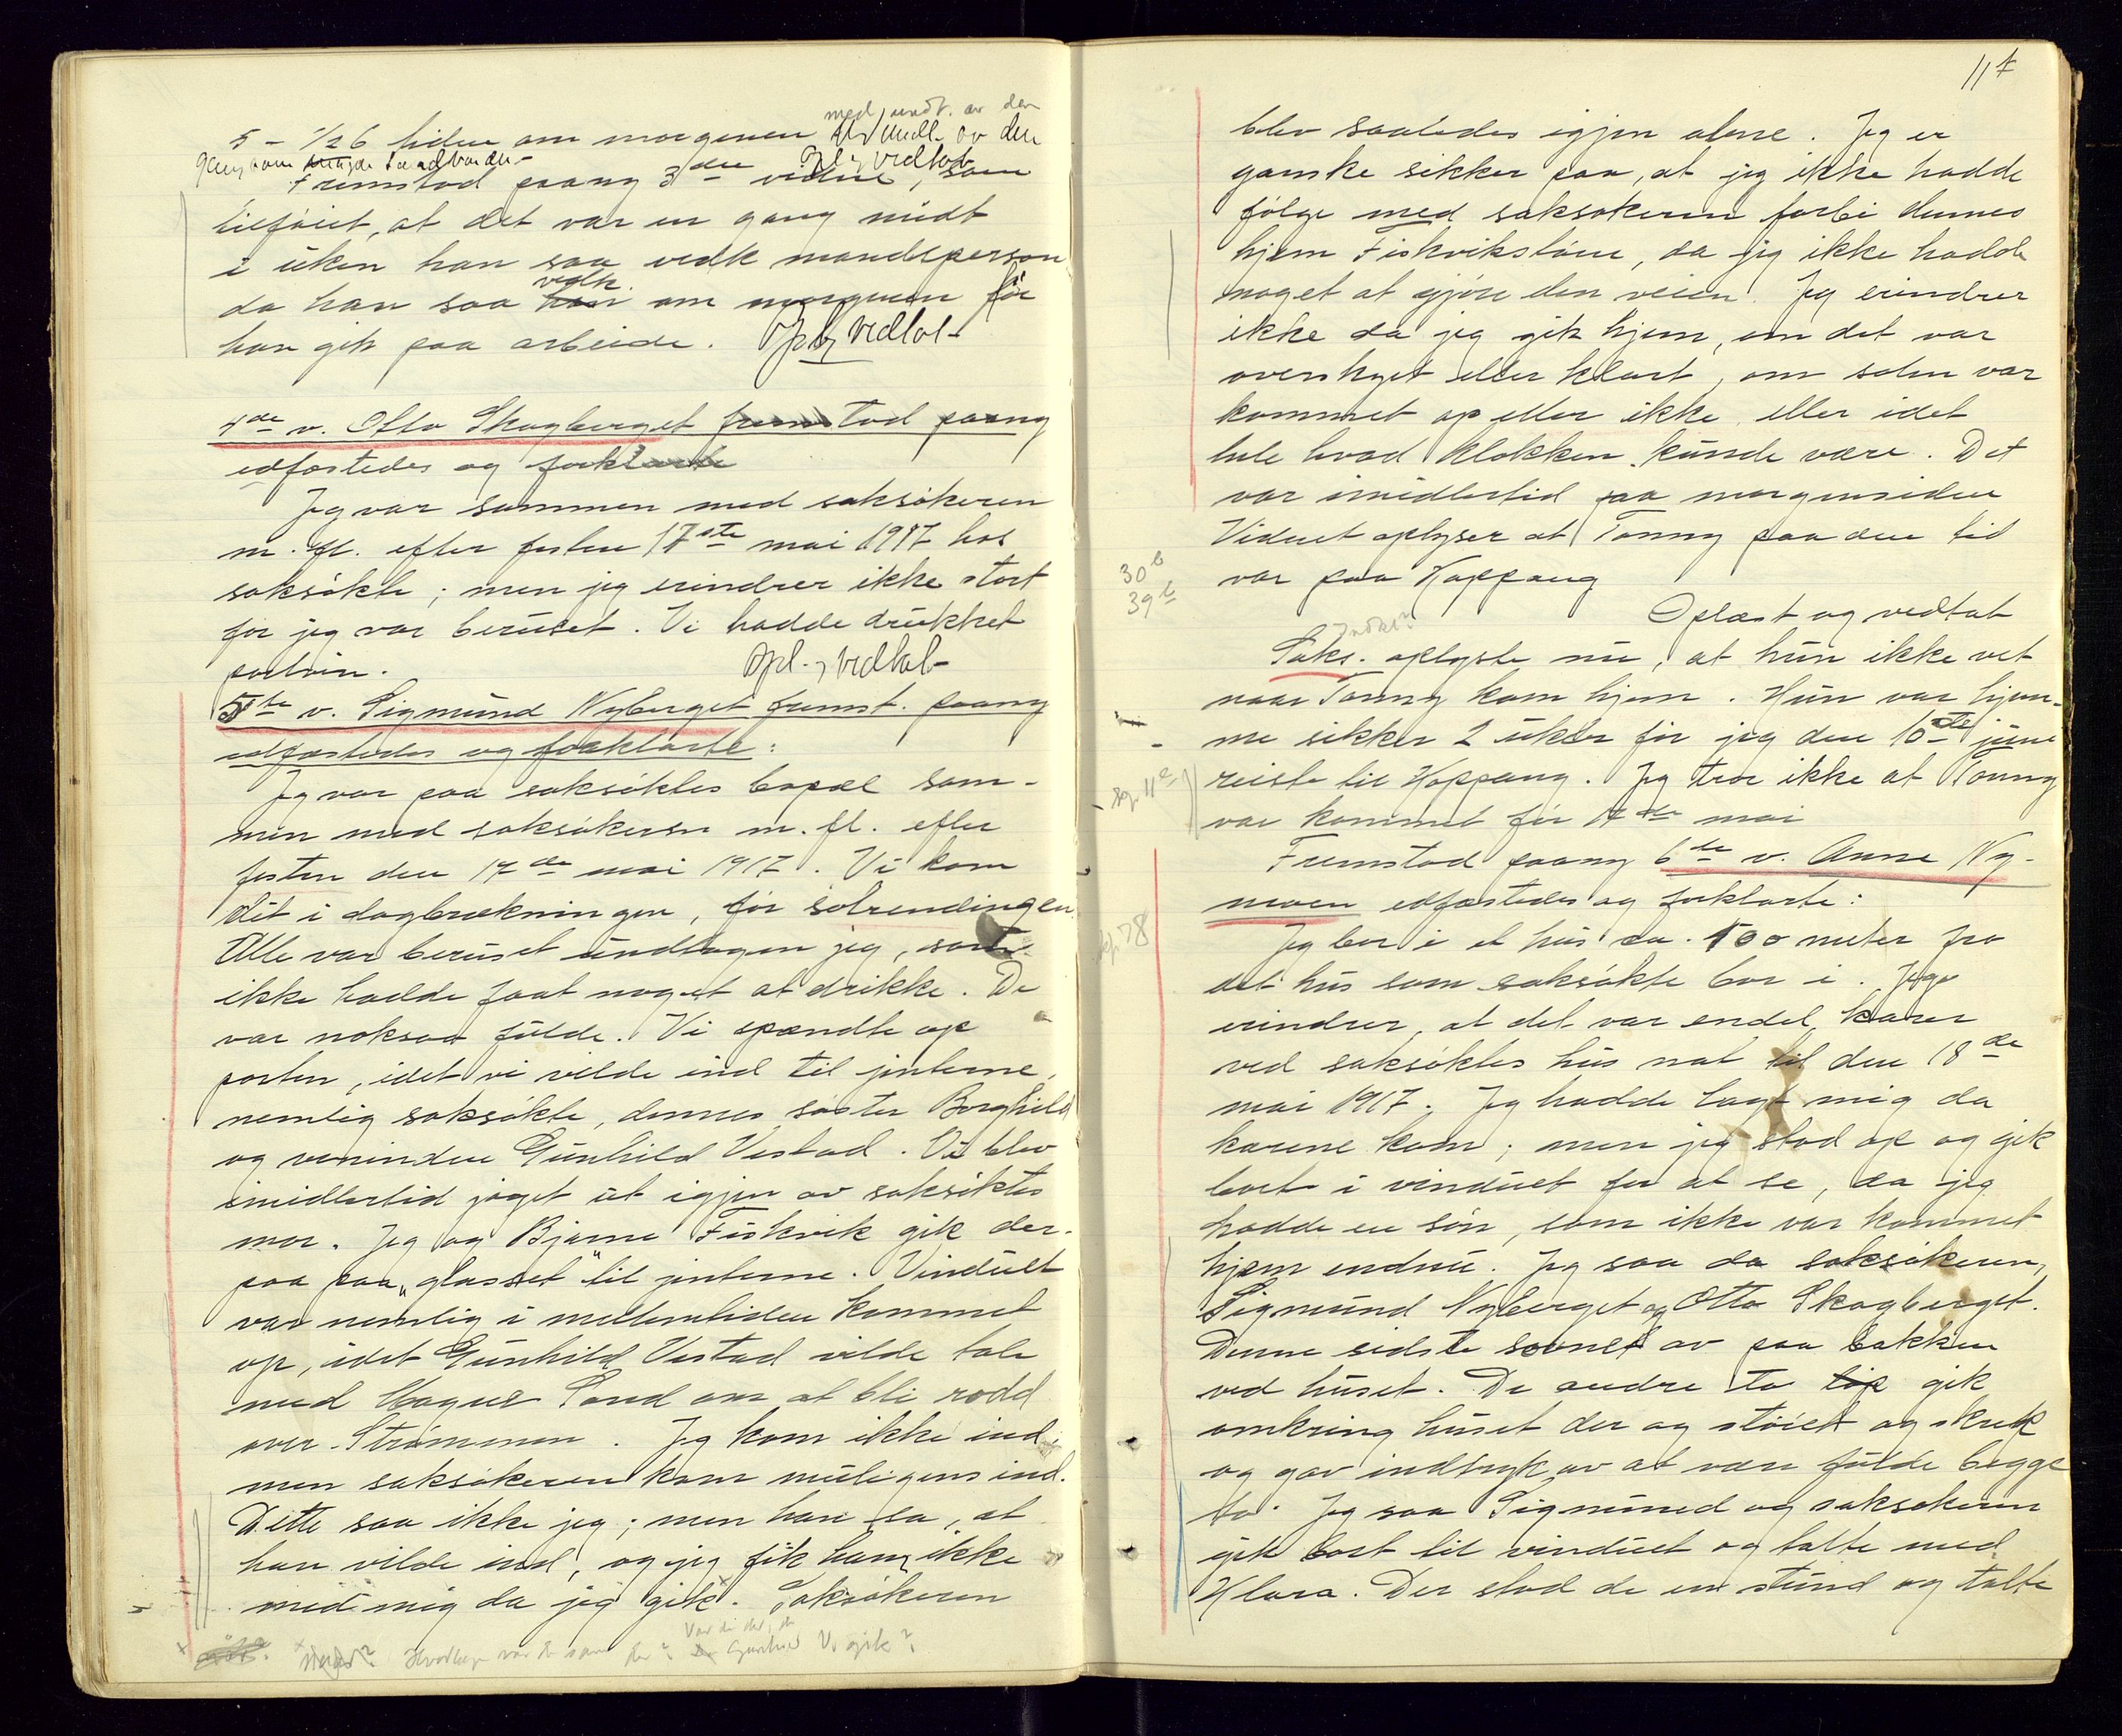 med undt. av den
5 - 1/2 6 tiden om morgenen
gang som
opl. & vedtat
Fremstod paany 3die vidne, som
tilføiet, at det var en gang midt
i uken han saa vedk mandsperson
da han saa vedk. om morgenen før
han gik paa arbeide. Opl & vedtat

4de v. Otto Skogberget fremstod paany
edfæstedes og forklarte
Jeg var sammen med saksøkeren
m. fl. efter festen 17de mai 1917 hos
saksøkte; men jeg erindrer ikke stort
for jeg var beruset. Vi hadde drukket
portvin. Opl. & vedtat
5te v. Sigmund Nyberget fremst. paany
edfæstedes og forklarte:
Jeg var paa saksøktes bopæl sam-
men med saksøkeren m. fl. efter
festen den 17de mai 1917. Vi kom
dit i dagbrækningen, før solrendingen.
Alle var beruset undtagen jeg, som
ikke hadde faat noget at drikke. De
var noksaa fulde. Vi spændte op
porten, idet vi vilde ind til jenterne,
nemlig saksøkte, dennes søster Borghild
og veninden Gunhild Vestad. Vi blev
imidlertid jaget ut igjen av saksøktes
mor. Jeg og Bjarne Fiskvik gik der-
paa paa "glasset" til jenterne. Vinduet
var nemlig i mellemtiden kommet
op, idet Gunhild Vestad vilde tale
med Magnus Sand om at bli rodd
over Strømmen. Jeg kom ikke ind,
men saksøkeren kom muligens ind.
Dette saa ikke jeg; men han sa, at
han vilde ind, og jeg fik ham ikke
med mig da jeg gik. Saksøkeren
Var de der, da
Hvorlænge var de sam der? Gunhild V. gik?

117
blev saaledes igjen alene. Jeg er
ganske sikker paa, at jeg ikke hadde
følge med saksøkeren forbi dennes
hjem Fiskvikstøen, da jeg ikke hadde
noget at gjøre den veien. Jeg erindrer
ikke da jeg gik hjem, om det var
overskyet eller klart, om solen var
kommet op eller ikke, eller idet
hele hvad klokken kunde være. Det
var imidlertid paa morgensiden
Vidnet oplyser at Tonny paa den tid
30b
39b
var paa Koppang
Oplæst og vedtat
Saks. oplyste nu, at hun ikke vet
naar Tonny kom hjem. Hun var hjem-
me sikker 2 uker før jeg den 10de juni
reiste til Koppang. Jeg tror ikke at Tonny
var kommet før 17de mai
Fremstod paany 6te v. Anne Ny-
moen edfæstedes og forklarte:
Jeg bor i et hus ca. 500 meter fra
det hus som saksøkte bor i. Jeg
erindrer, at det var endel karer
ved saksøktes hus nat til den 18de
mai 1917. Jeg hadde lagt mig da
karene kom; men jeg stod op og gik
bort i vinduet for at se, da jeg
hadde en søn, som ikke var kommet
hjem endnu. Jeg saa da saksøkeren,
Sigmund Nyberget og Otto Skogberget.
Denne sidste sovnet av paa bakken
ved huset. De andre to gik
omkring huset der og støiet og skrek
og gav indtryk av at være fulde begge
to. Jeg saa Sigmund og saksøkeren
gik bort til vinduet og talte med
Klara. Der stod de en stund og talte